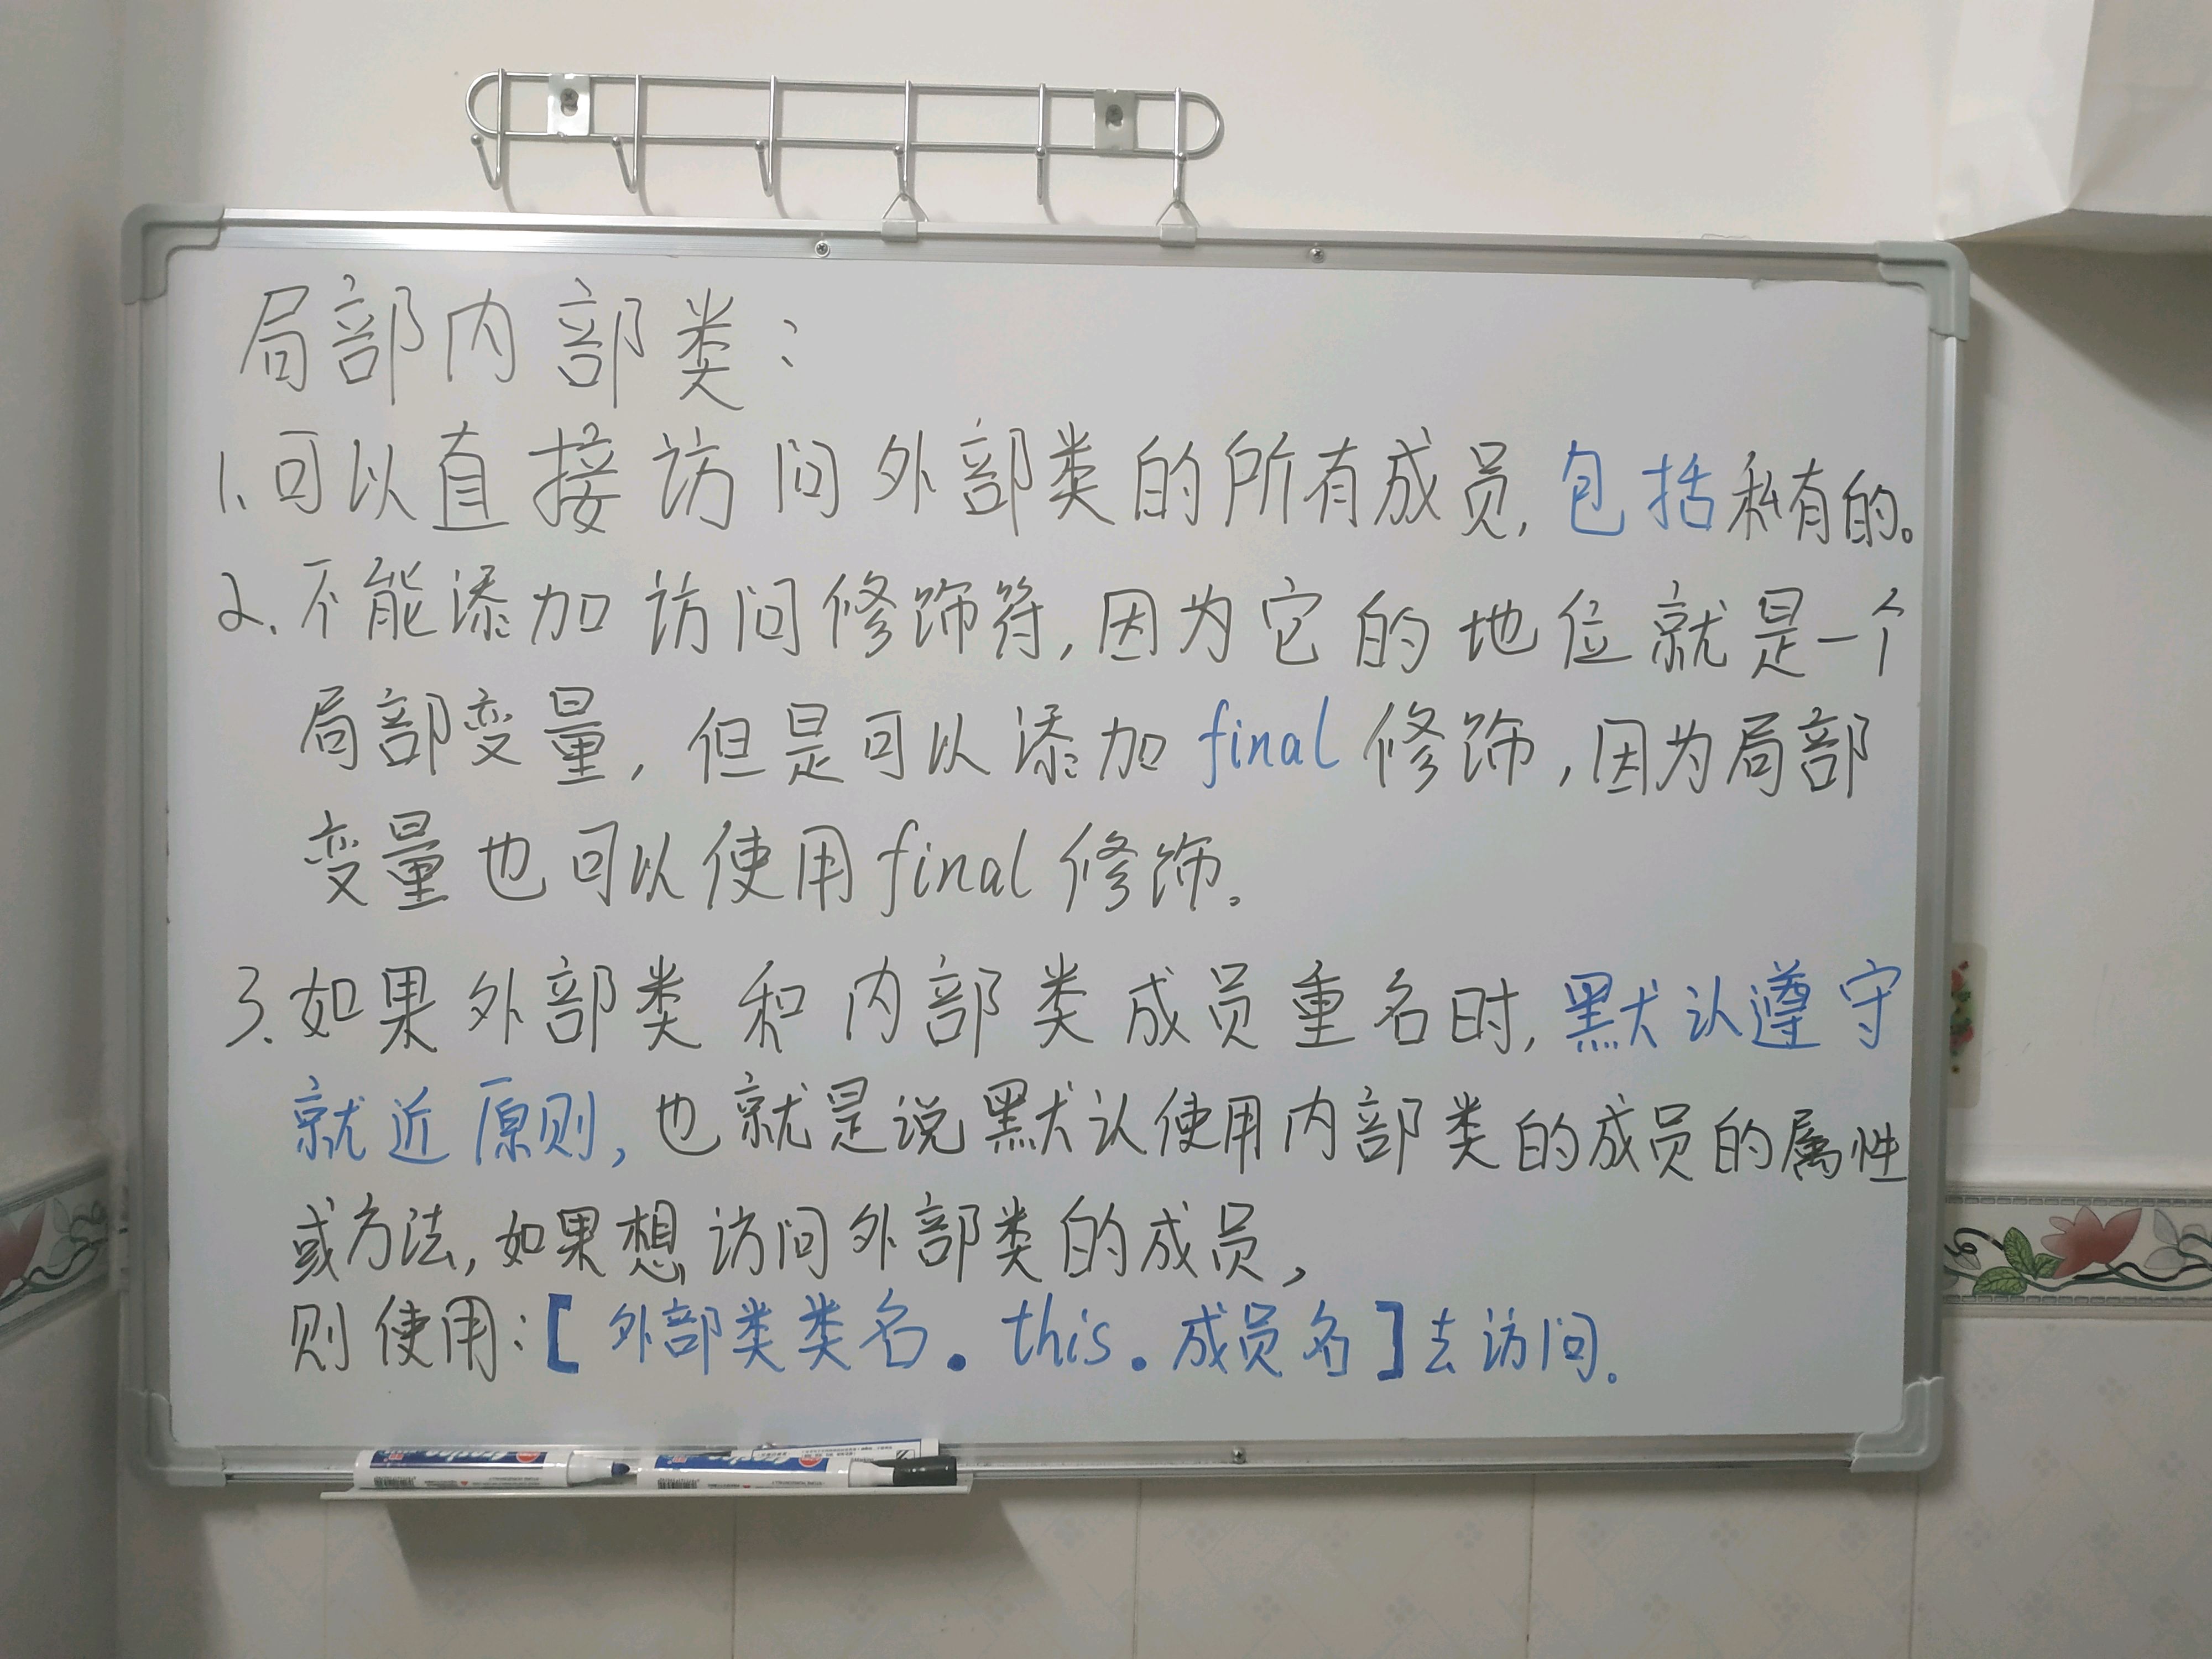 局部内部类：
1.可以直接访问外部类的所有成员,包括私有的。
2.不能添加访问修饰符,因为它的地位就是一个
局部变量,但是可以添加final修饰,因为局部
变量也可以使用final修饰。
3.如果外部类和内部类成员重名时,默认遵守
就近原则,也就是说默认使用内部类的成员的属性
或方法,如果想访问外部类的成员,
则使用:【外部类类名.this.成员名】去访问。